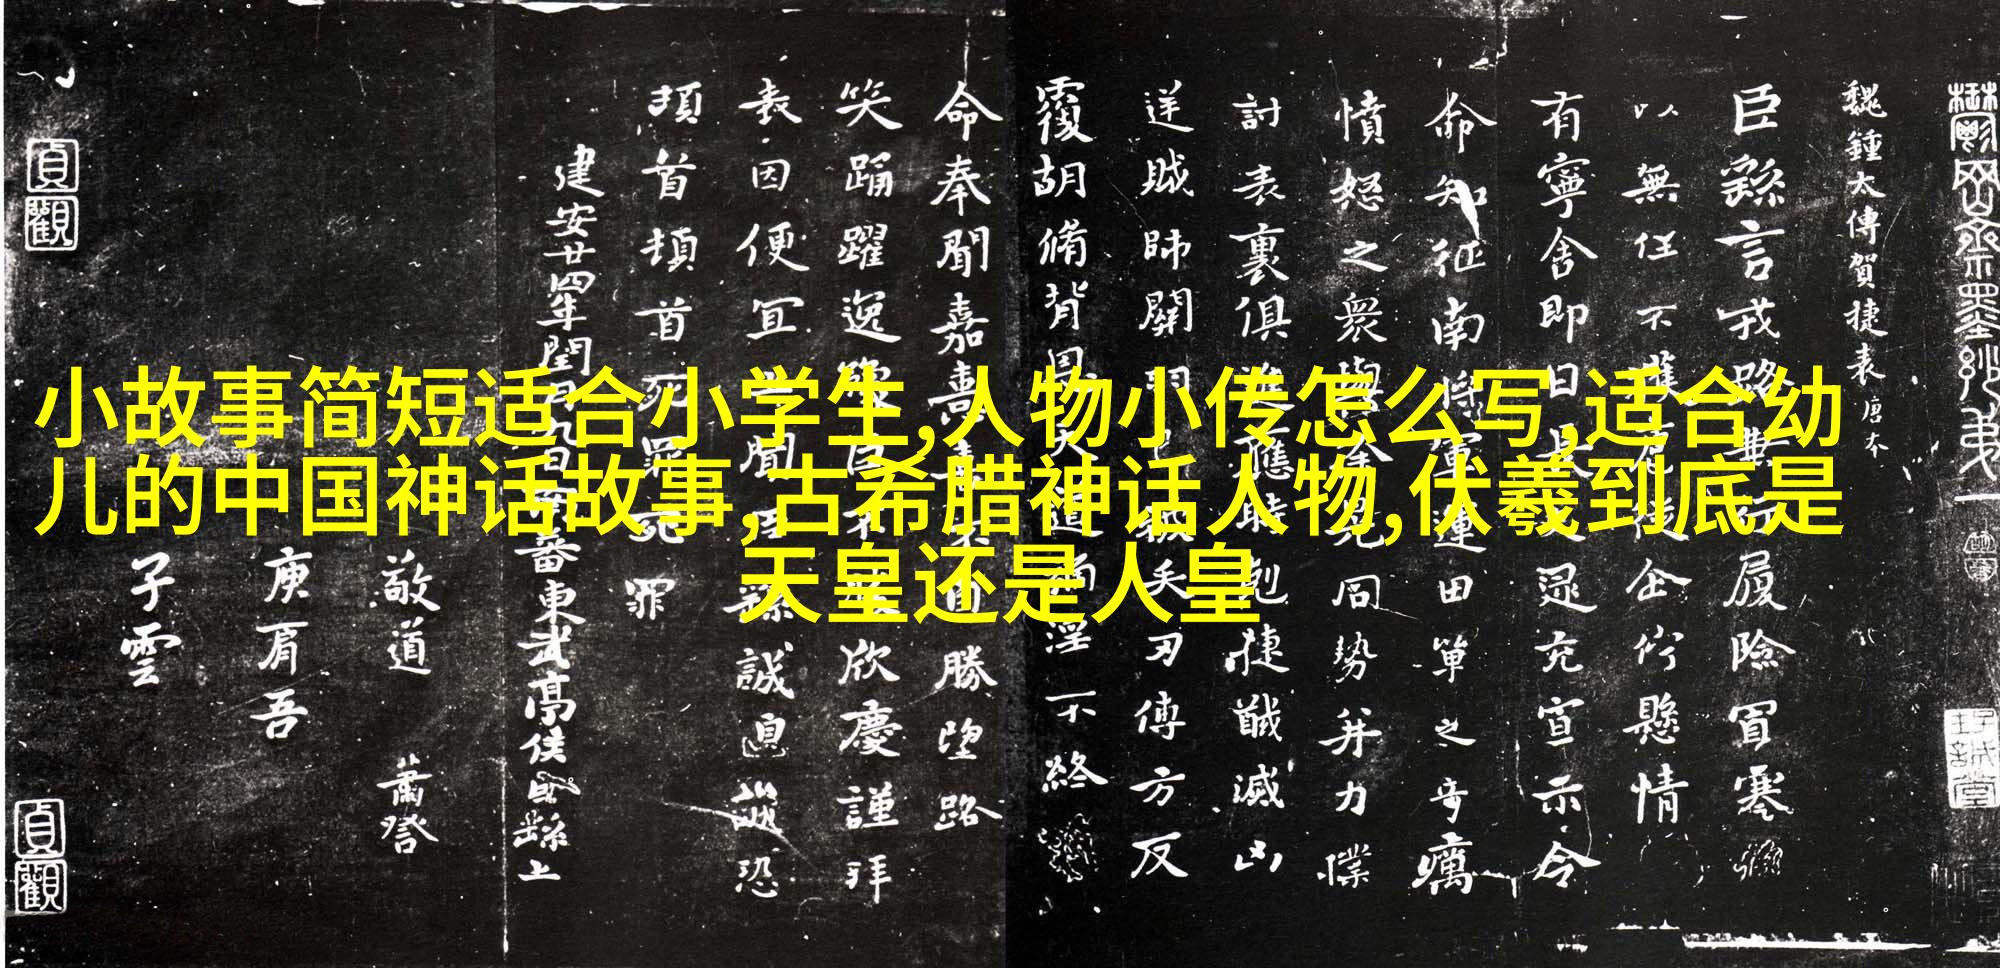 小故事简短适合小学生,人物小传怎么写,适合幼
儿的中国神话故事,古希腊神话人物,伏羲到底是
天皇还是人皇
鬱岡齋墨妙第一
魏鍾太傅賀捷表 唐本
臣繇言戎路兼行履險冒寒
以無任不獲扈從企佇懸情
有寧舍即日長史逯充宣示令
命知征南將軍運田單之奇厲
憤怒之眾與徐晃同勢并力撲
討表裏俱進應時剋捷馘滅凶
逆賊帥關羽已被矢刃傅方反
覆胡脩背恩天道禍淫不終
命奉聞嘉憙喜不自勝望路
笑踊躍逸豫臣不勝欣慶謹拜
表因便宜上聞臣繇誠惶誠恐
頓首頓首死罪死罪
建安廿四年閏月九日南蕃東武亭侯臣繇上
敬道 蕭營
庾肩吾
子雲
貞觀
貞觀